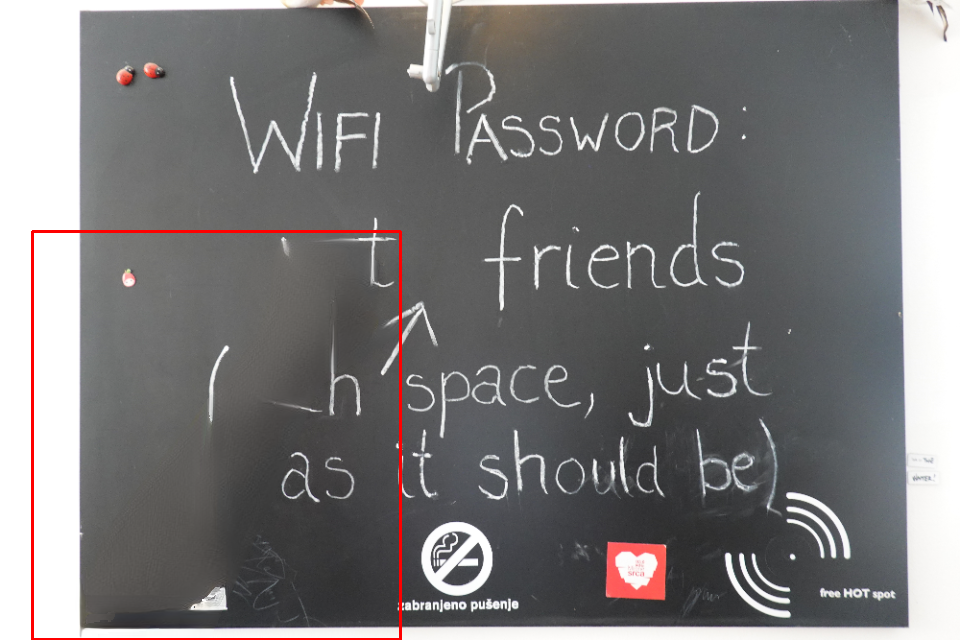 WIFI PASSWORD:
friends
space, just
as it should be)
zabranjeno pušenje
free HOT spot